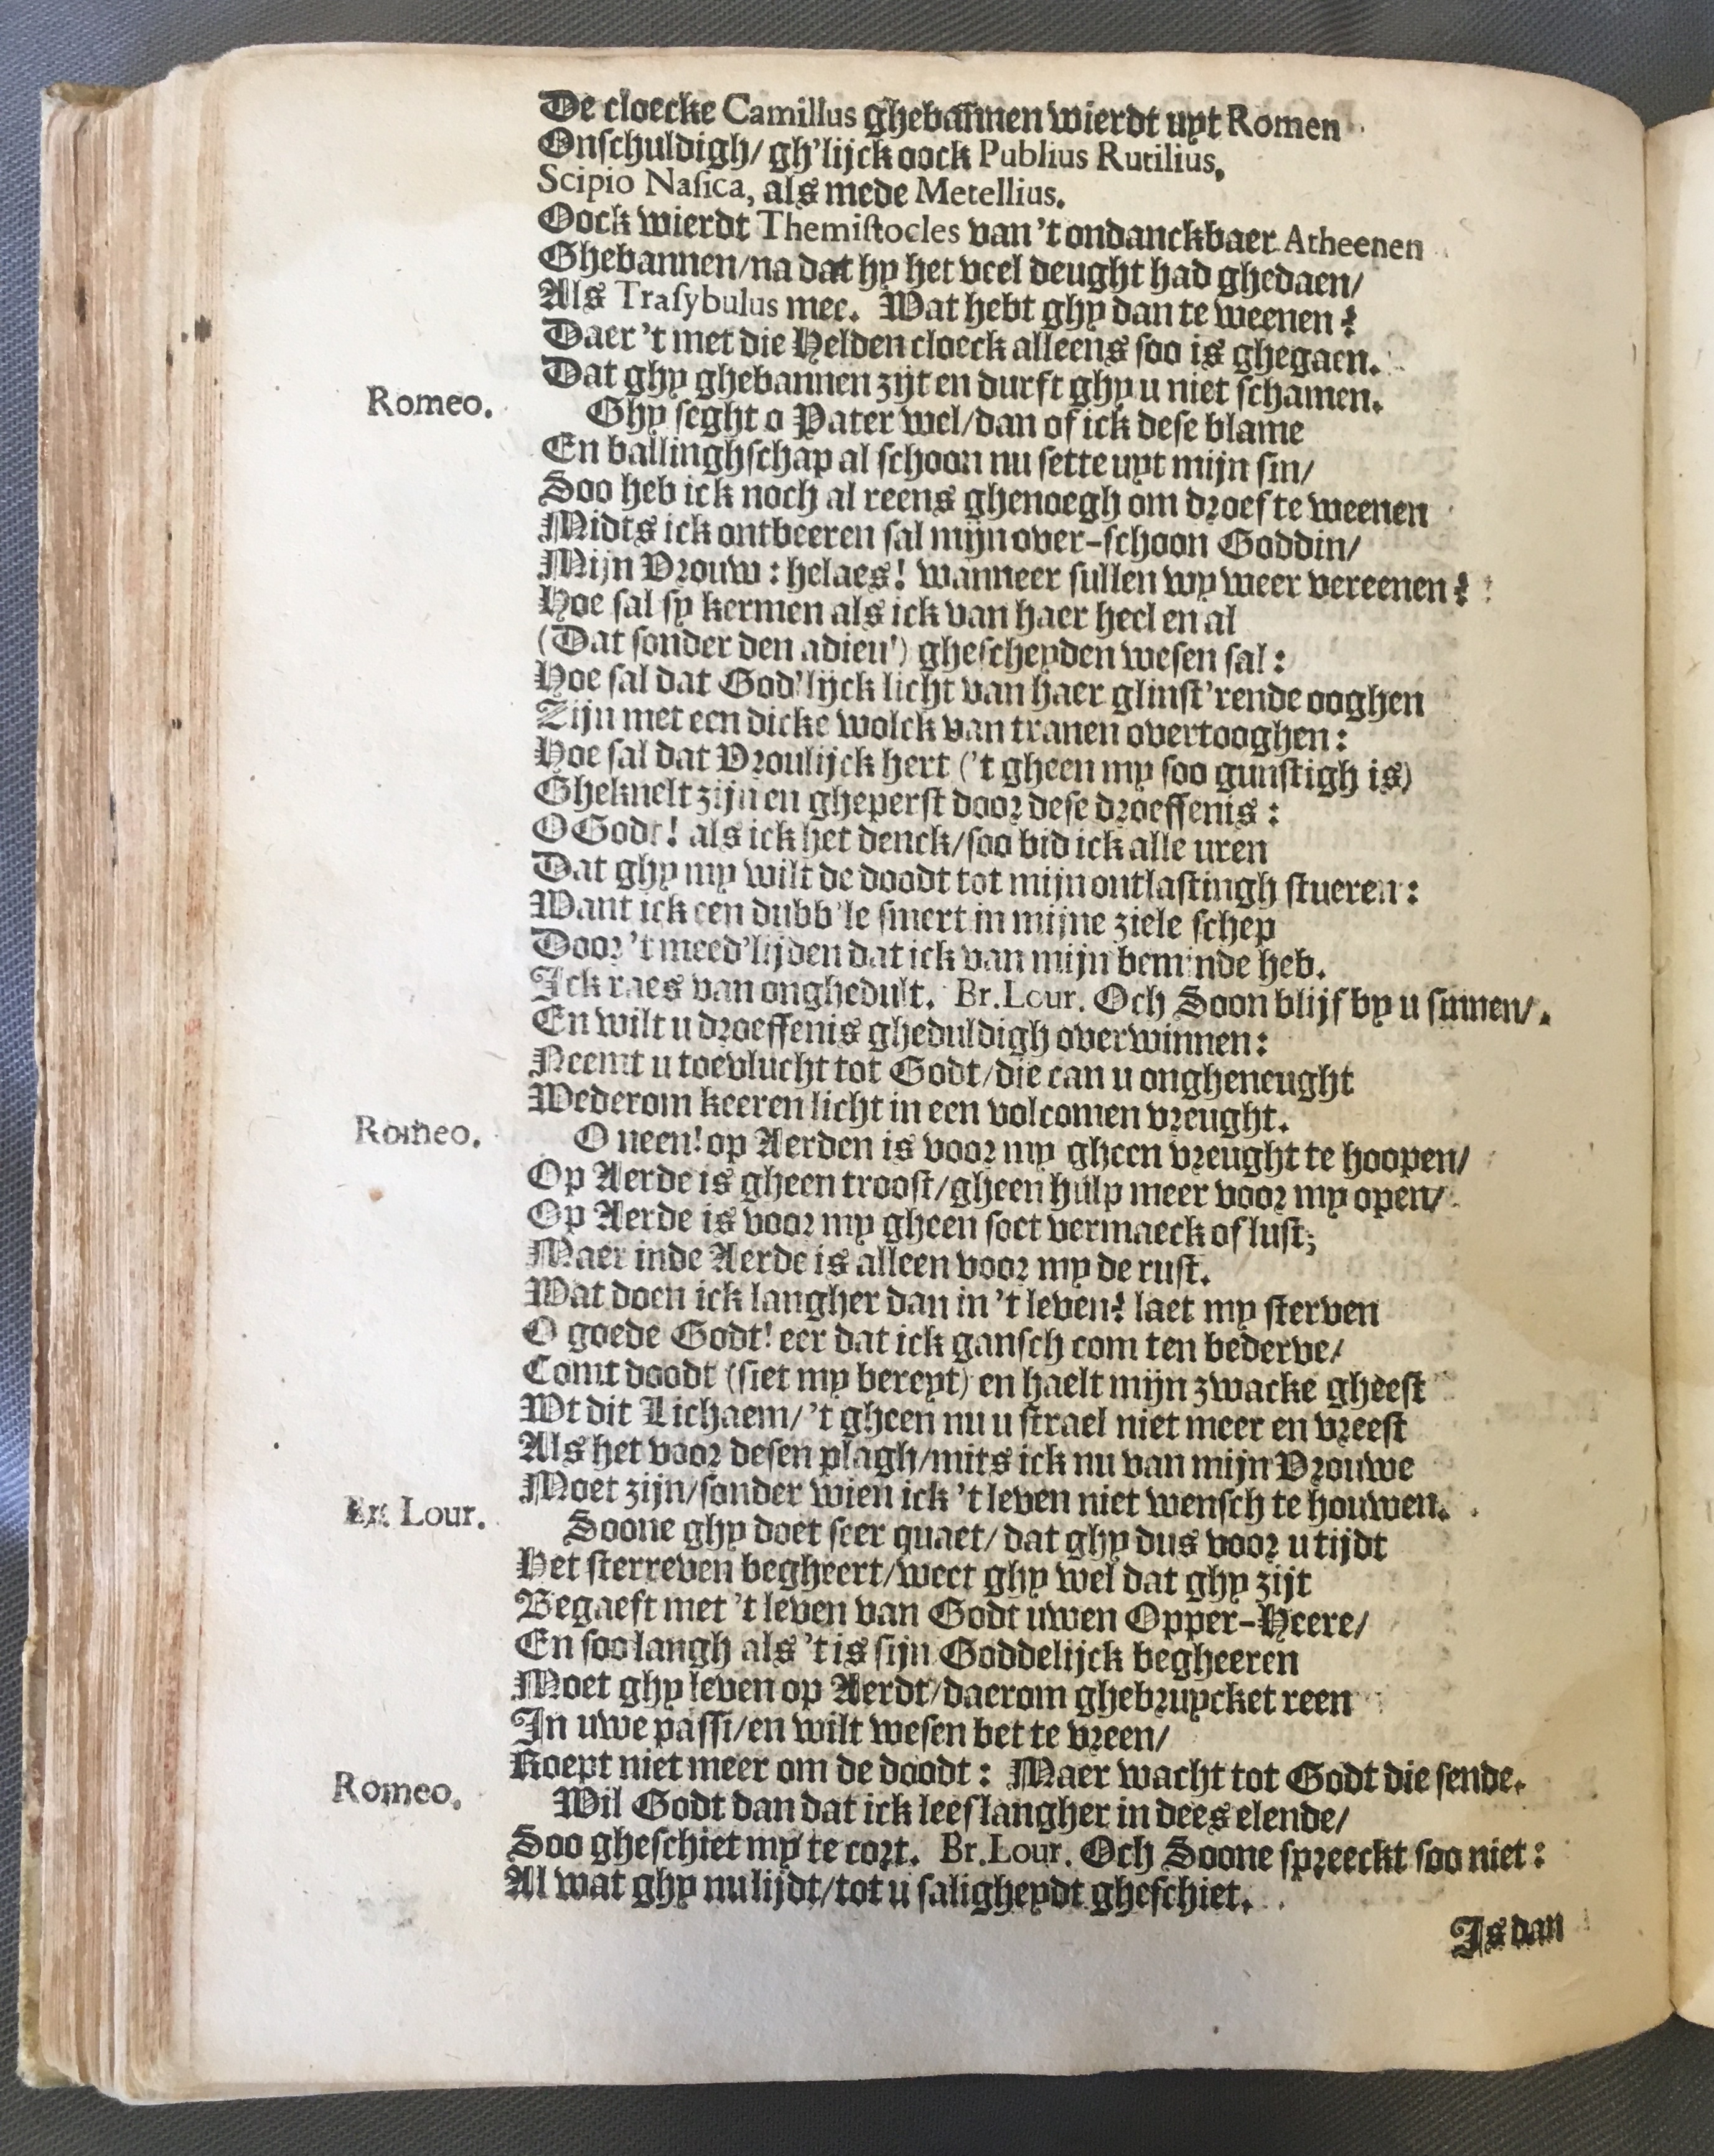 De cloecke Camillus ghebannen wierdt uyt Romen
Onschuldigh/ gh'lijck oock Publius Rutilius,
Scipio Nasica, als mede Metellius.
Oock wierdt Themistocles van 't ondanckbaer Atheenen
Ghebannen/na dat hy het veel deught had ghedaen/
Als Trasybulus mee. Wat hebt ghy dan te weenen?
Daer 't met die Helden cloeck alleens soo is ghegaen.
Dat ghy ghebannen zijt en durft ghy u niet schamen.
Romeo. Ghy seght o Pater wel/dan of ick dese blame
En ballinghschap al schoon nu sette uyt mijn sin/
Soo heb ick noch al reens ghenoegh om droef te weenen
Midts ick ontbeeren sal mijn over-schoon Goddin/
Mijn Vrouw: helaes! wanneer sullen wy weer vereenen?
Hoe sal sy kermen als ick van haer heel en al
(Dat sonder den adieu') ghescheyden wesen sal:
Hoe sal dat God'lijck licht van haer glinst'rende ooghen
Zijn met een dicke wolck van tranen overtooghen:
Hoe sal dat Vroulijck hert ('t gheen my soo gunstigh is)
Gheknelt zijn en gheperst door dese droeffenis:
O Godt! als ick het denck/soo bid ick alle uren
Dat ghy my wilt de doodt tot mijn ontlastingh stueren:
Want ick een dubb'le smert in mijne ziele schep
Door 't meed'lijden dat ick van mijn beminde heb.
Ick raes van onghedult. Br.Lour. Och Soon blijf by u sinnen/.
En wilt u droeffenis gheduldigh overwinnen:
Neemt u toevlucht tot Godt/die can u ongheneught
Wederom keeren licht in een volcomen vreught.
Romeo. O neen! op Aerden is voor my gheen vreught te hoopen/
Op Aerde is gheen troost/gheen hulp meer voor my open/
Op Aerde is voor my gheen soet vermaeck of lust;
Maer inde Aerde is alleen voor my de rust.
Wat doen ick langher dan in 't leven? laet my sterven
O goede Godt! eer dat ick gansch com ten bederve/
Comt doodt (siet my bereyt) en haelt mijn zwacke gheest
Wt dit Lichaem/'t gheen nu u strael niet meer en vreest
Als het voor desen plagh/mits ick nu van mijn Vrouwe
Moet zijn/sonder wien ick 't leven niet wensch te houwen.
Br. Lour. Soone ghy doet seer quaet/dat ghy dus voor u tijdt
Het sterreven begheert/weet ghy wel dat ghy zijt
Begaeft met 't leven van Godt uwen Opper-Heere/
En soo langh als 't is sijn Goddelijck begheeren
Moet ghy leven op Aerdt/daerom ghebruycket reen
In uwe passi/en wilt wesen bet te vreen/
Roept niet meer om de doodt: Maer wacht tot Godt die sende.
Romeo. Wil Godt dan dat ick leef langher in dees elende/
Soo gheschiet my te cort. Br.Lour. Och Soone spreeckt soo niet:
Al wat ghy nu lijdt/tot u saligheydt gheschiet.
Is dan